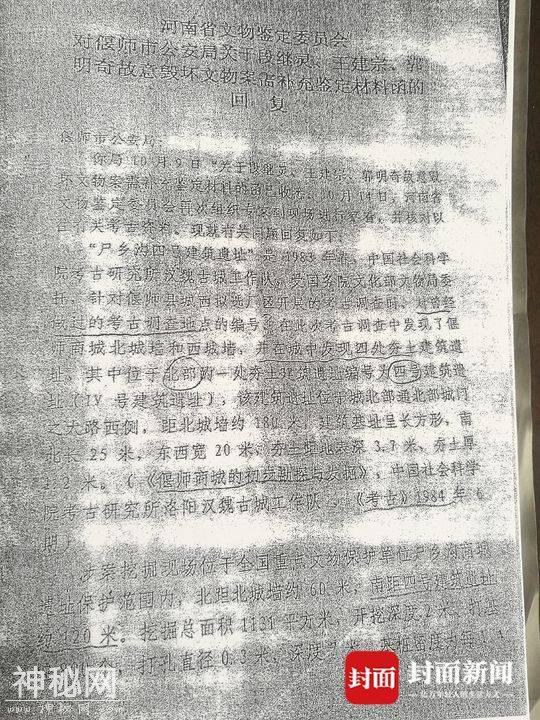 河南省文物鉴定委员会
对偃师市公安局关于段继灵、王建宗、郭
明奇故意毁坏文物案需补充鉴定材料函的
回 复
偃师市公安局:
你局10月9日“关于段继灵、王建宗、郭明奇故意毁
坏文物案需补充鉴定材料的函已收悉。10月14日,河南省
文物鉴定委员会再次组织专家到现场进行察看,并核对
有关考古资料。现就有关问题回复如下:
“尸乡沟四号建筑遗址”是1983年春,中国社会科学
院考古研究所汉魏古城工作队,受国务院文化部文物局委
托,针对偃师县城西拟建厂区开展的考古调查时,对曾经
的考古调查地点的编号。在此次考古调查中发现了偃
师商城北城墙和西城墙,并在城中发现四处夯土建筑遗
址。其中位于北部的一处夯土建筑遗迹编号为四号建筑遗
址(IV号建筑遗址),该建筑遗址位于城北部通北部城门
之大路西侧,距北城墙约180米,建筑基址呈长方形,南
北长25米,东西宽20米,夯土距地表深3.7米,夯土厚
2米。(《偃师商城的初步勘探与发掘》,中国社会科学
院考古研究所洛阳汉魏古城工作队,《考古》1984年6
期)
涉案挖掘现场位于全国重点文物保护单位尸乡沟商城
遗址保护范围内,北距北城墙约60米,南距四号建筑遗址
约120米。挖掘总面积1131平方米,开挖深度2米,
个,打孔直径0.3米,深度
神秘网
WWW.神秘网.COM
封面
封面新闻
亿万年轻人的生活方式